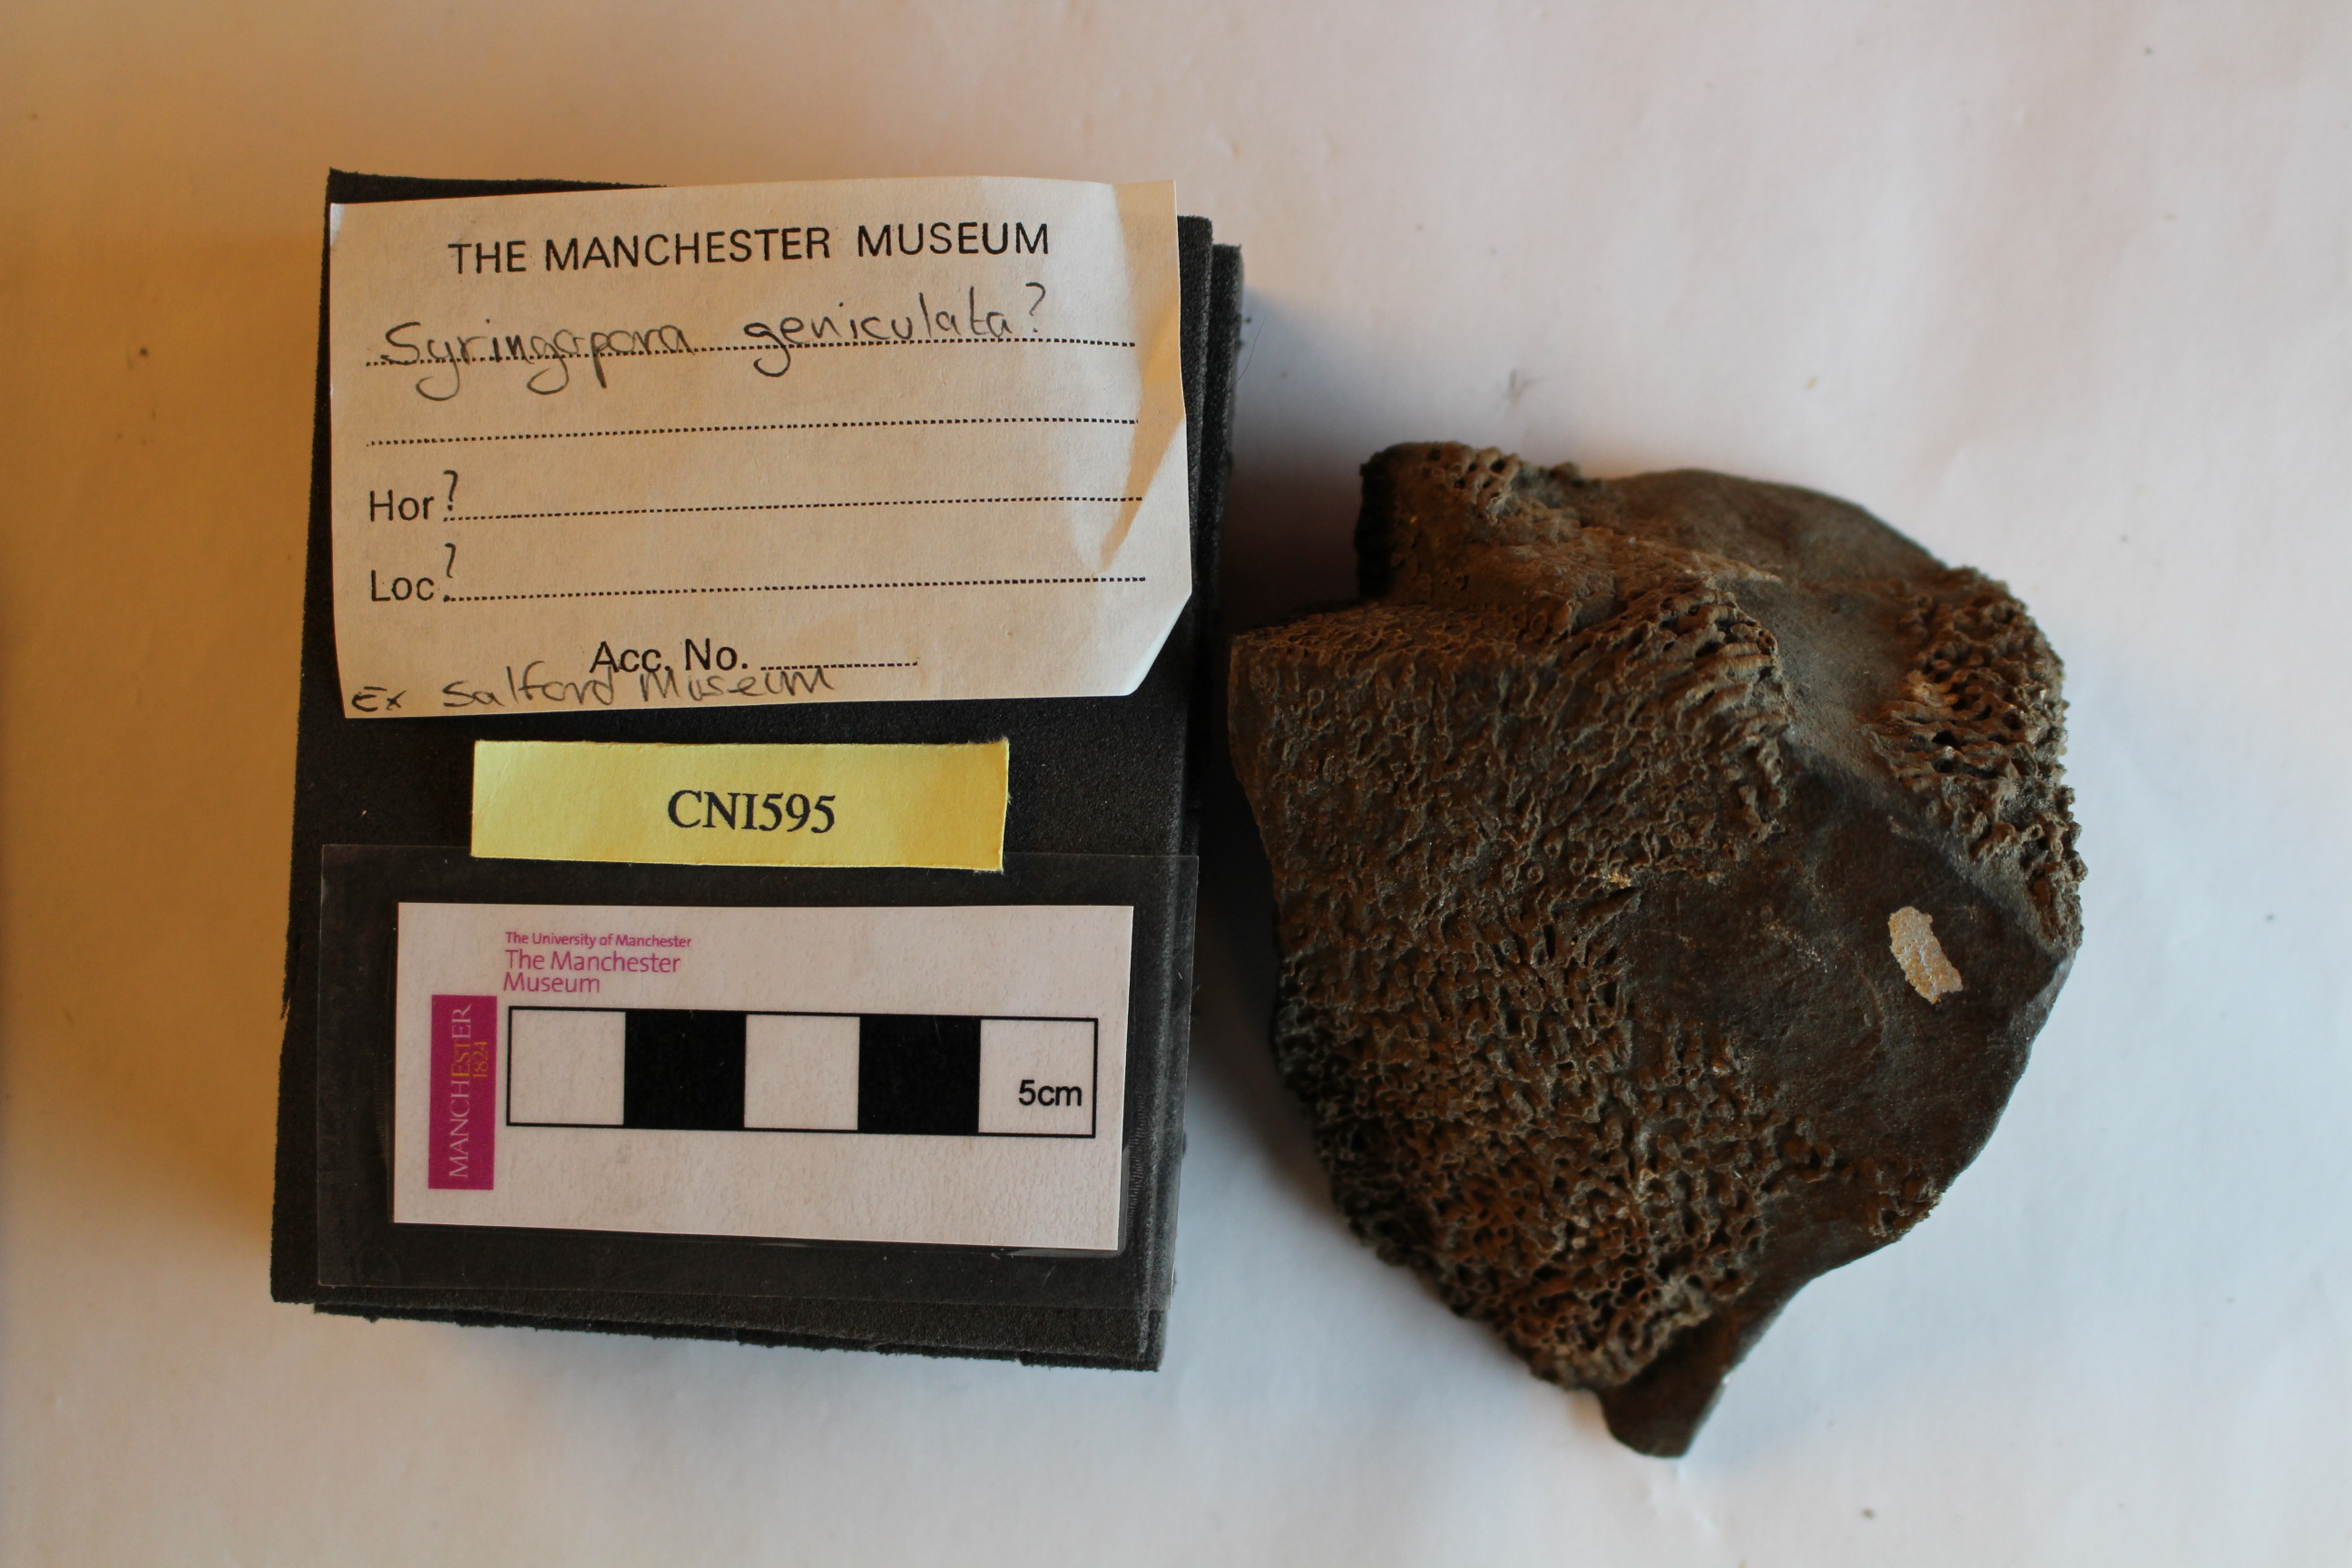 THE MANCHESTER MUSEUM
Syringapora geniculata?
Hor ?
Loc ?
Acc. No.
Ex Salford Museum
CN1595
The University of Manchester
The Manchester
Museum
MANCHESTER
1824
5cm